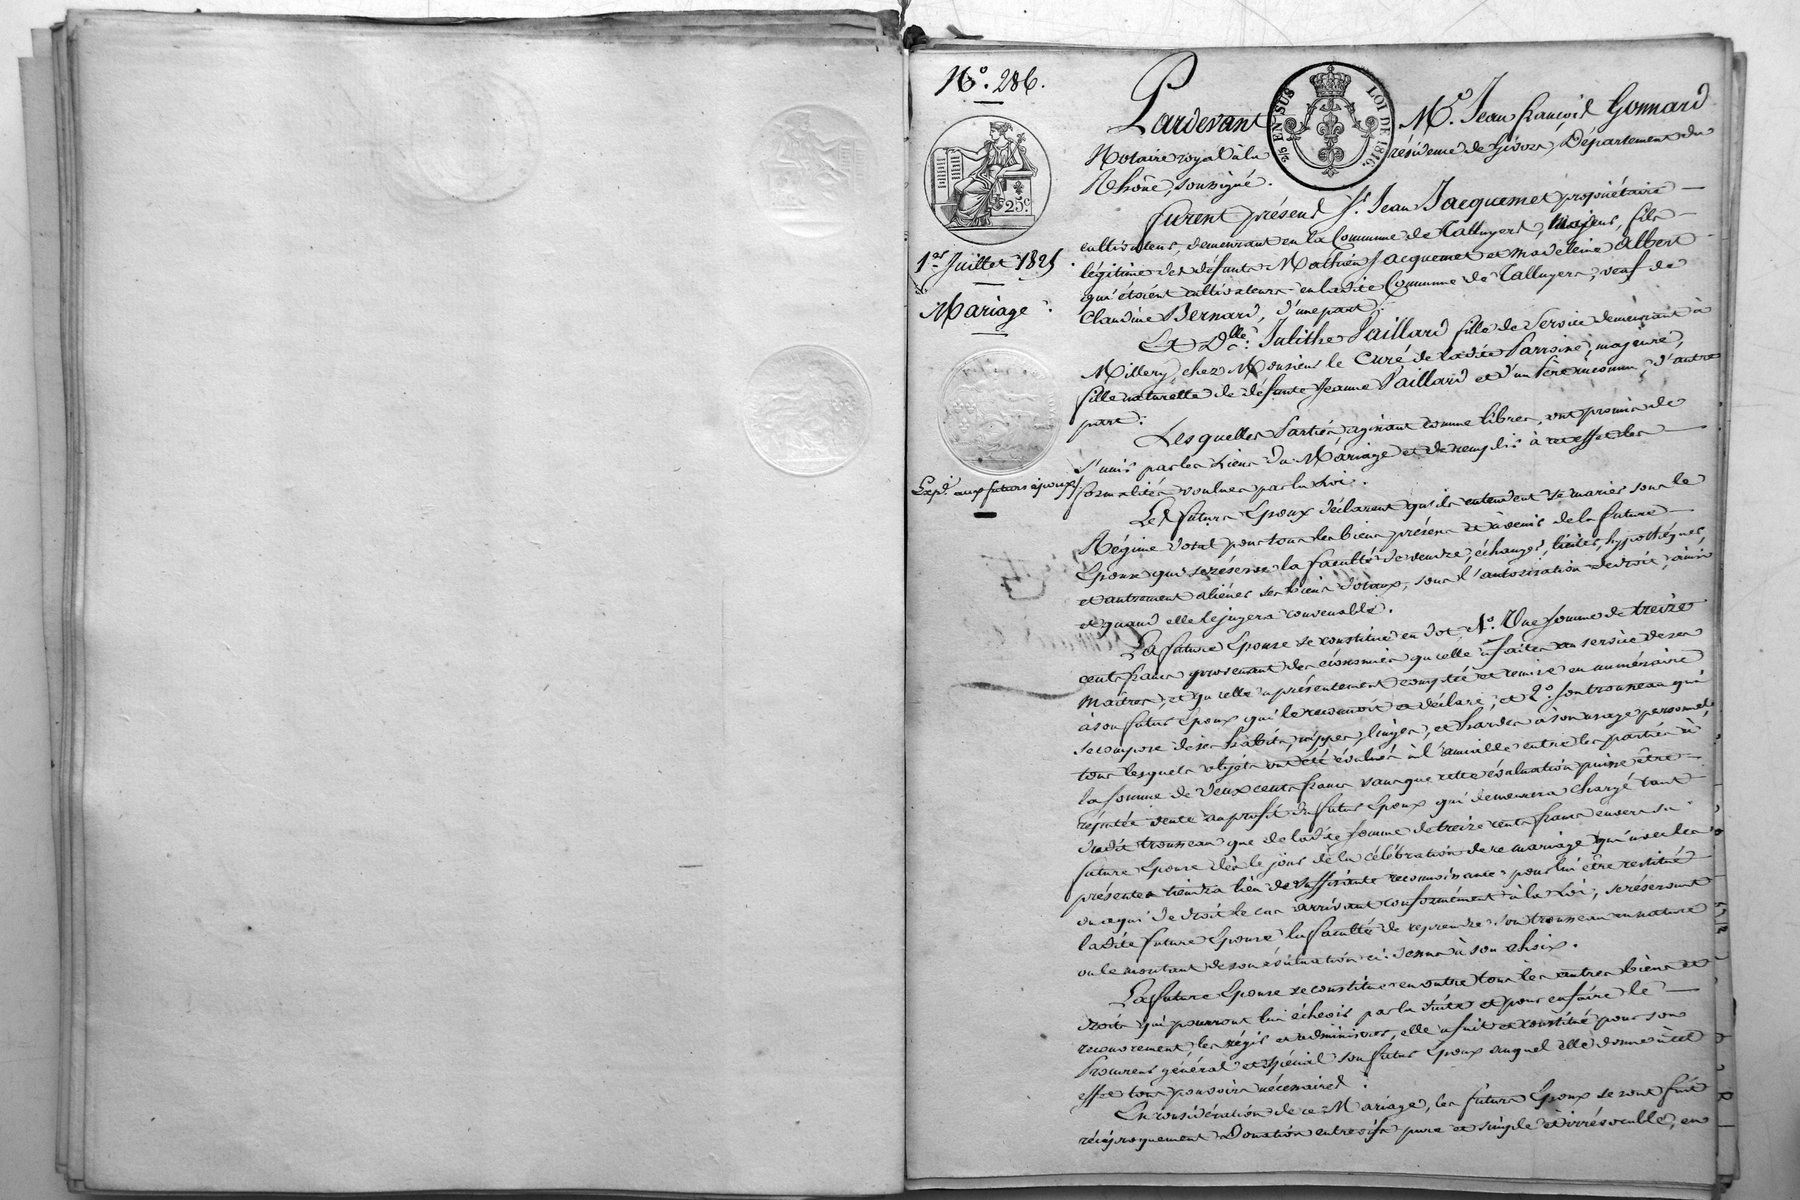 N.o 286.
25c
1er Juillet 1825
Mariage
Expé. aux futurs époux
2/5 EN SUS
LOI DE 1816.
Pardevant Me. Jean François Gonnard
Notaire royal à la résidence de Givors, Département du
Rhône, soussigné.
Furent présens Sr. Jean Jacquemet propriétaire
cultivateur, demeurant en la Commune de Talluyers, Majeur, fils
légitime des défunts Mathieu Jacquemet et Madeleine Albert
qui étoient cultivateurs en ladite Commune de Talluyers, veuf de
Claudine Bernard, d'une part.
Et Dlle. Julithe Paillard fille de Service demeurant à
Millery chez Monsieur le Curé de ladite Parroisse, majeure,
fille naturelle de défunte Jeanne Paillard et d'un Père inconnu, d'autre
part.
Lesquelles Parties agissant comme libres, ont promis de
s'unir par les Liens du Mariage et de remplir à cet effet les
formalités voulues par la Loi.
Les futurs Epoux déclarent qu'ils entendent se marier sous le
Régime dotal pour tous les biens présens et à venir de la future
Epouse qui se réserve la faculté de vendre, échanger, liciter, hypothéquer,
et autrement aliéner ses biens dotaux, sous l'autorisation de droit, ainsi
et quand elle le jugera convenable.
La future Epouse se constitue en dot, 1o. Une somme de treize
cents francs provenant des économies qu'elle a faites au service de ses
Maîtres, et qu'elle a présentement comptée et remise en numéraire
à son futur Epoux qui le reconnoît et déclare; et 2o. son trousseau qui
se compose de ses habits, nippes, linges, et hardes à son usage personnel,
tous lesquels objets ont été évalués à l'amiable entre les parties à
la somme de deux cents francs sans que cette évaluation puisse être
réputée vente au profit du futur Epoux qui demeurera chargé tant
dudit trousseau que de ladite somme de treize cents francs envers sa
future Epouse dès le jour de la célébration de ce mariage qui avec les
présentes tiendra lieu de suffisante reconnoissance pour lui être restitué
ou à qui de droit le cas arrivant conformément à la Loi, se réservant
ladite future Epouse la faculté de reprendre son trousseau en nature
ou le montant de son évaluation ci-dessus à son choix.
La future Epouse se constitue en outre tous les autres biens et
droits qui pourront lui échéoir par la suite et pour en faire le
recouvrement, les régir et administrer, elle a fait et constitué pour son
Procureur général et spécial son futur Epoux auquel elle donne à cet
effet tous pouvoirs nécessaires.
En considération de ce Mariage, les futurs Epoux se sont fait
réciproquement Donation entrevifs pure et simple et irrévocable, en